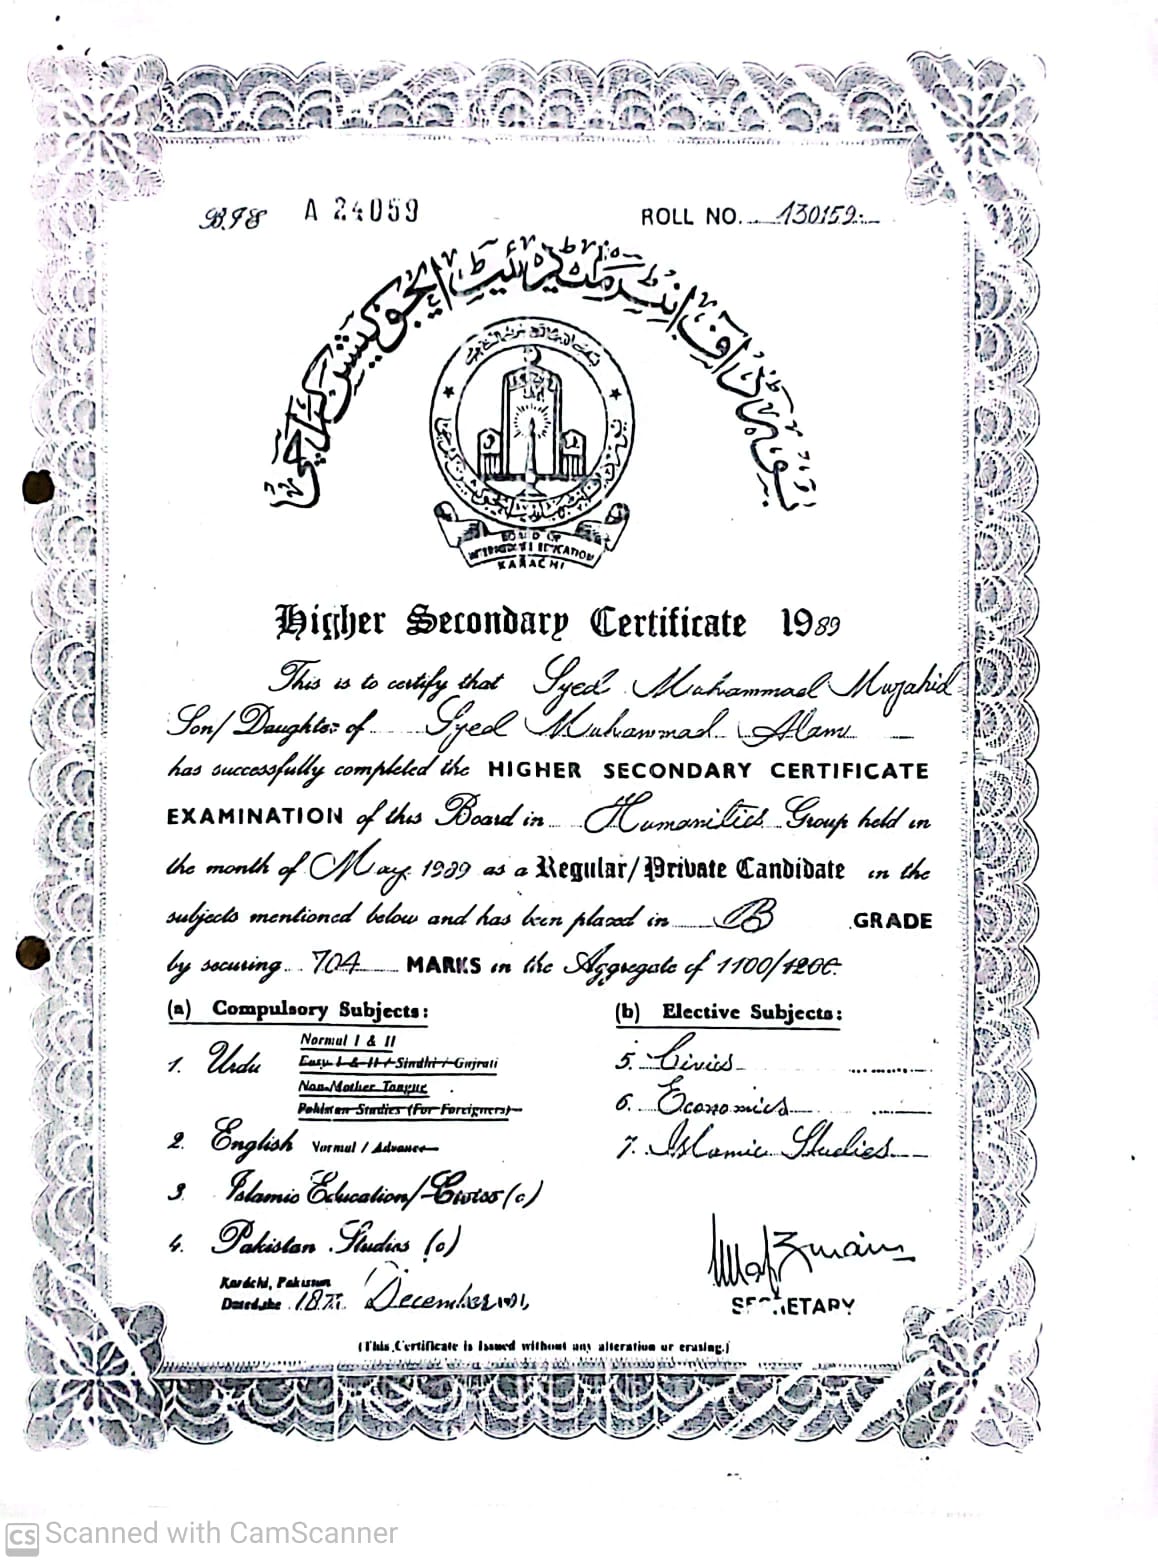 B.I.E A 24059 ROLL NO. 130159
بورڈ آف انٹرمیڈیٹ ایجوکیشن کراچی
BOARD OF
INTERMEDIATE EDUCATION
KARACHI
Higher Secondary Certificate 1989
This is to certify that Syed Muhammad Mujahid
Son/Daughter of Syed Muhammad Alam
has successfully completed the HIGHER SECONDARY CERTIFICATE
EXAMINATION of this Board in Humanities Group held in
the month of May 1989 as a Regular/Private Candidate in the
subjects mentioned below and has been placed in B GRADE
by securing 704 MARKS in the Aggregate of 1100/1200.
(a) Compulsory Subjects:
1. Urdu Normal I & II
Easy I & II / Sindhi / Gujrati
Non-Mother Tongue
Pakistan Studies (For Foreigners)
2. English Normal / Advance
3. Islamic Education/Civics (c)
4. Pakistan Studies (c)
(b) Elective Subjects:
5. Civics
6. Economics
7. Islamic Studies
Karachi, Pakistan
Dated the 18th December 1991,
SECRETARY
(This Certificate is Issued without any alteration or erasing.)
CS Scanned with CamScanner